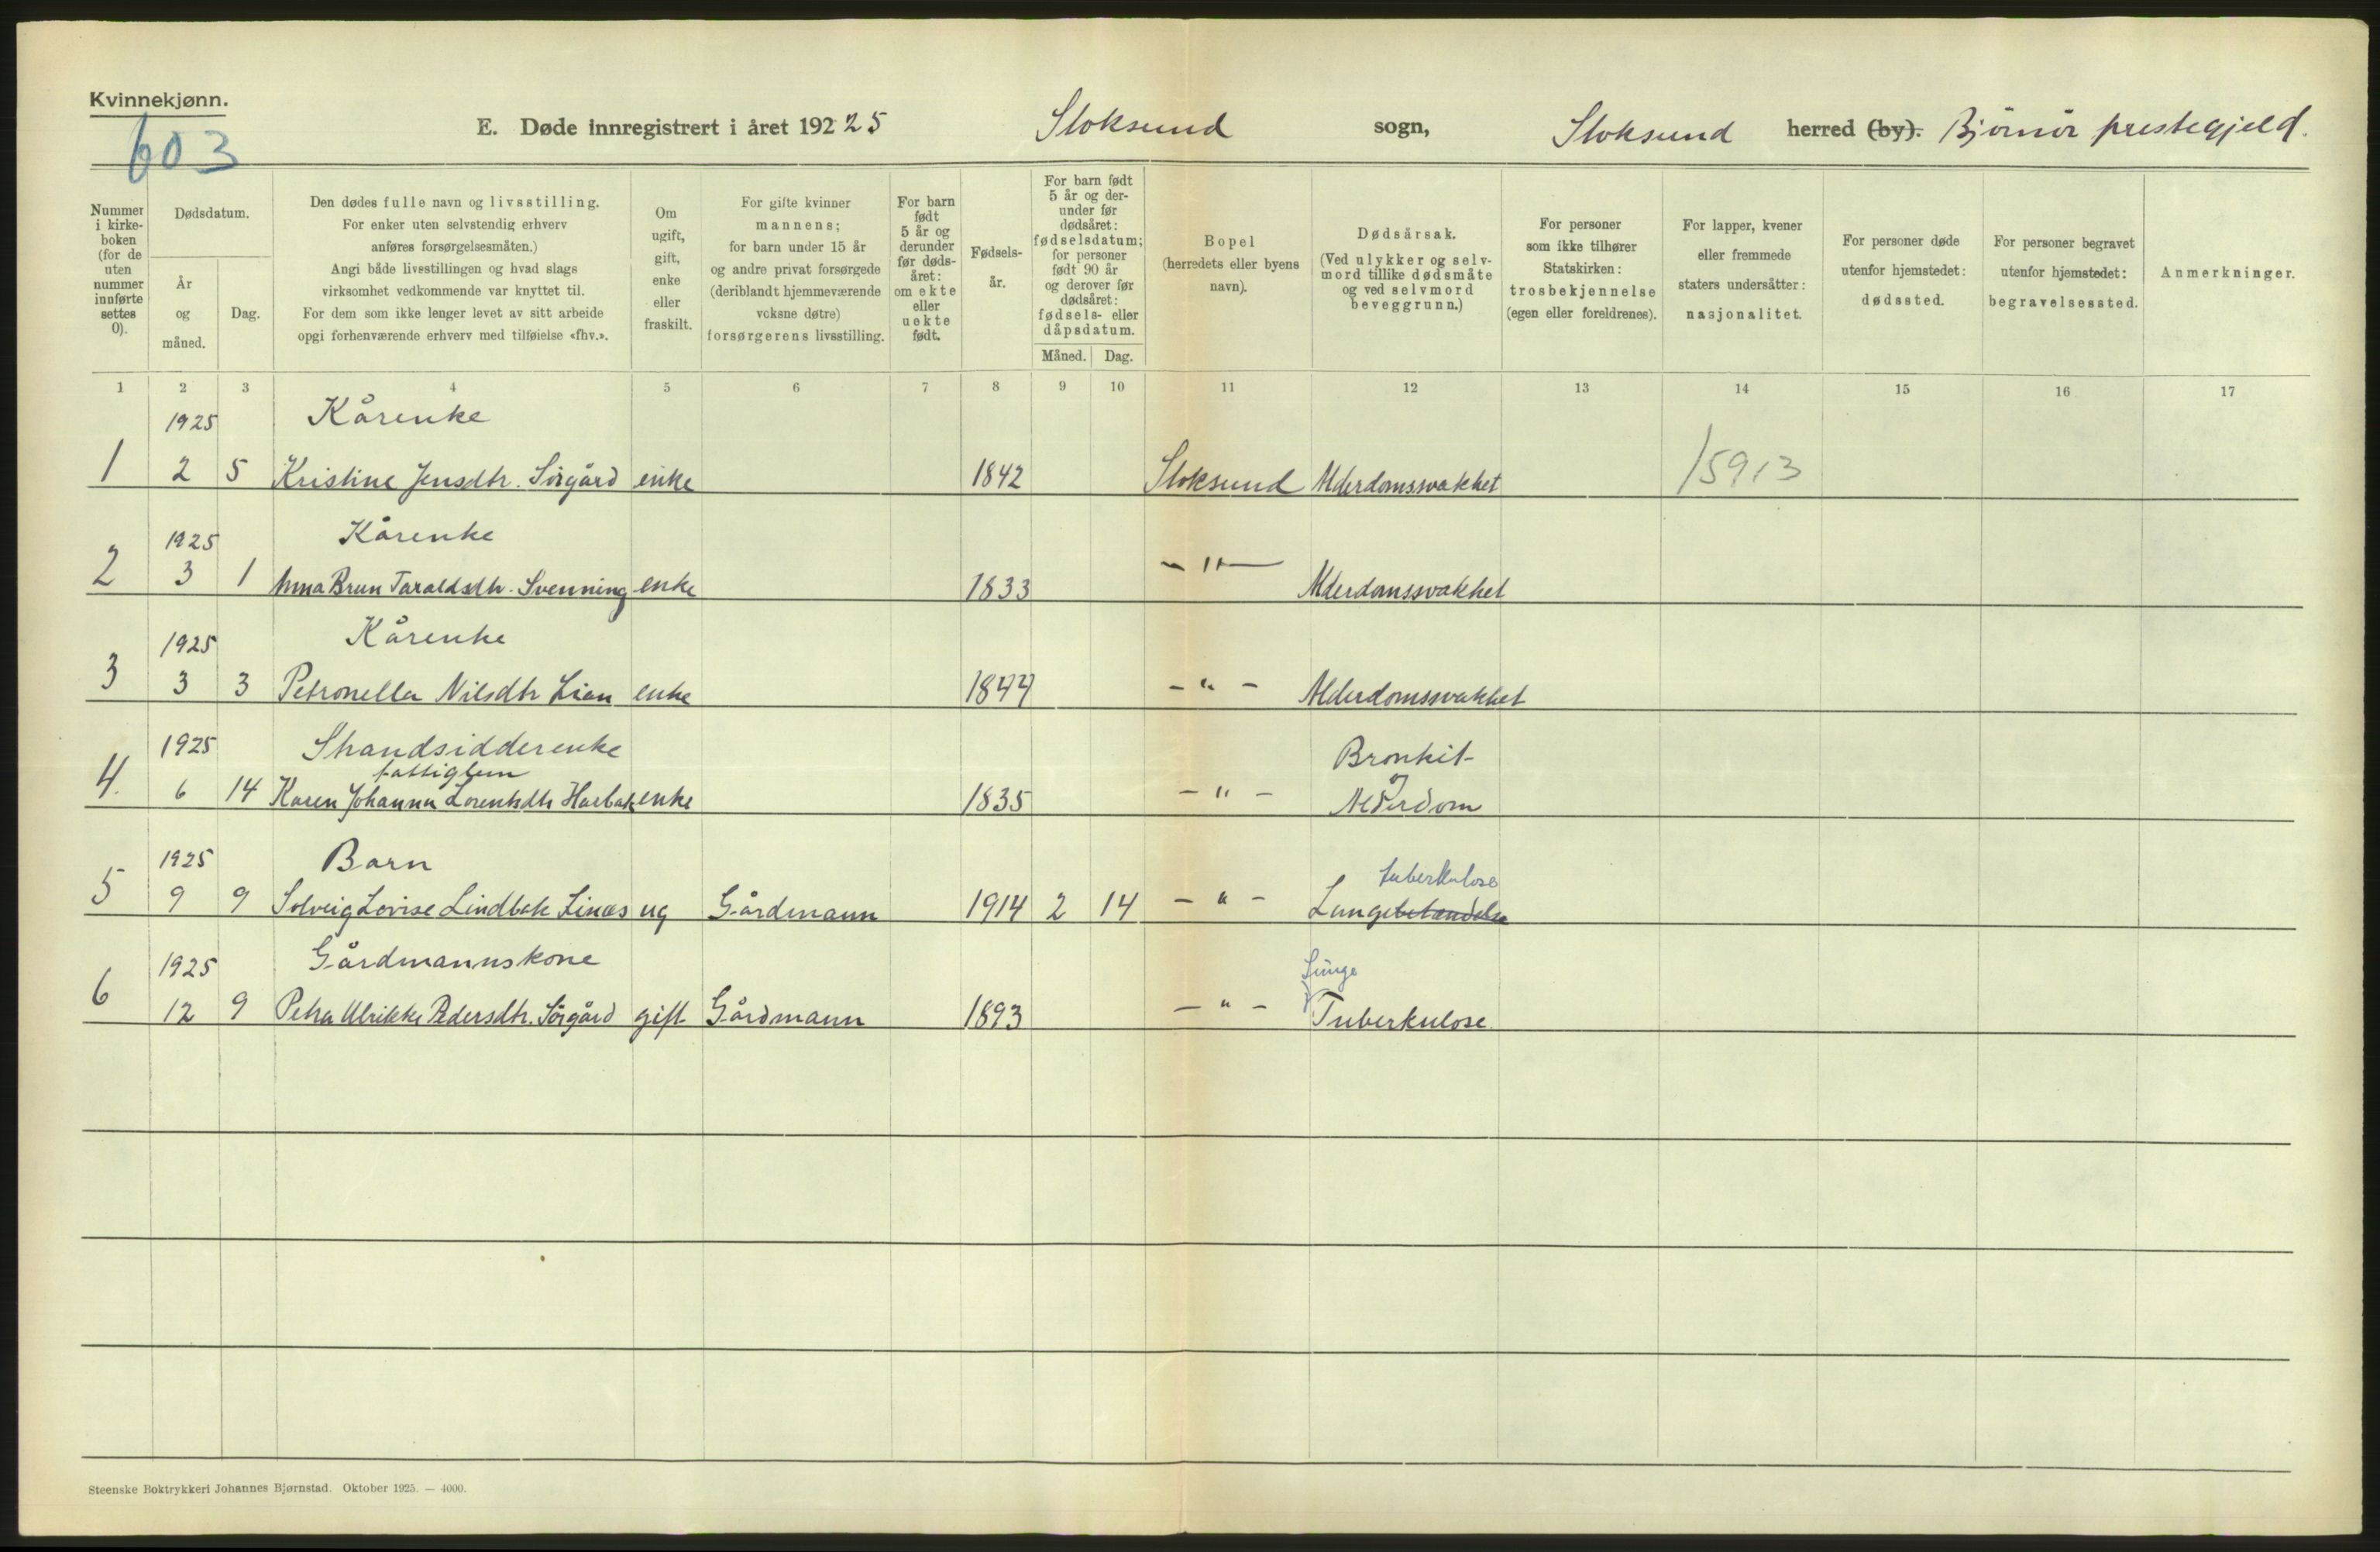 Kvinnekjønn.
603
E. Døde innregistrert i året 192 25 Stoksund sogn, Stoksund herred (by). Bjørnør prestegjeld.
Nummer i kirke- boken (for de uten nummer innførte settes 0).
Dødsdatum.
År og måned.
Dag.
Den dødes fulle navn og livsstilling.
For enker uten selvstendig erhverv
anføres forsørgelsesmåten.)
Angi både livsstillingen og hvad slags
virksomhet vedkommende var knyttet til.
For dem som ikke lenger levet av sitt arbeide
opgi forhenværende erhverv med tilføielse «fhv.».
Om ugift, gift, enke eller fraskilt.
For gifte kvinner
mannens;
for barn under 15 år
og andre privat forsørgede
(deriblandt hjemmeværende
voksne døtre)
forsørgerens livsstilling.
For barn født 5 år og derunder før døds- året: om ekte eller uekte født.
Fødsels- år.
For barn født 5 år og der- under før dødsåret: fødselsdatum; for personer født 90 år og derover før dødsåret: fødsels- eller dåpsdatum.
Måned. Dag.
Bopel
(herredets eller byens
navn).
Dødsårsak.
(Ved ulykker og selv-
mord tillike dødsmåte
og ved selvmord
beveggrunn.)
For personer
som ikke tilhører
Statskirken:
trosbekjennelse
(egen eller foreldrenes).
For lapper, kvener
eller fremmede
staters undersåtter:
nasjonalitet.
For personer døde
utenfor hjemstedet:
dødssted.
For personer begravet
utenfor hjemstedet:
begravelsessted.
Anmerkninger.
1 2 3 4 5 6 7 8 9 10 11 12 13 14 15 16 17
1925 Kårenke
1 2 5 Kristine Jensdtr. Sørgård enke 1842 Stoksund Alderdomssvakhet 15913
1925 Kårenke
2 3 1 Anna Brun Taraldsdtr. Svenning enke 1833 - " - Alderdomssvakhet
1925 Kårenke
3 3 3 Petronella Nilsdtr Lian enke 1844 - " - Alderdomssvakhet
1925 Strandsidderenke Bronkit
fattiglem og
4. 6 14 Karen Johanna Lorentsdtr Harbak enke 1835 - " - Alderdom
1925 Barn tuberkulose
5 9 9 Solveig Lovise Lindbak Linæs ug Gårdmann 1914 2 14 - " - Lungebetændelse
1925 Gårdmannskone Lunge
6 12 9 Petra Ulrikke Pedersdtr. Sørgård gift Gårdmann 1893 - " - Tuberkulose
Steenske Boktrykkeri Johannes Bjørnstad. Oktober 1925. — 4000.